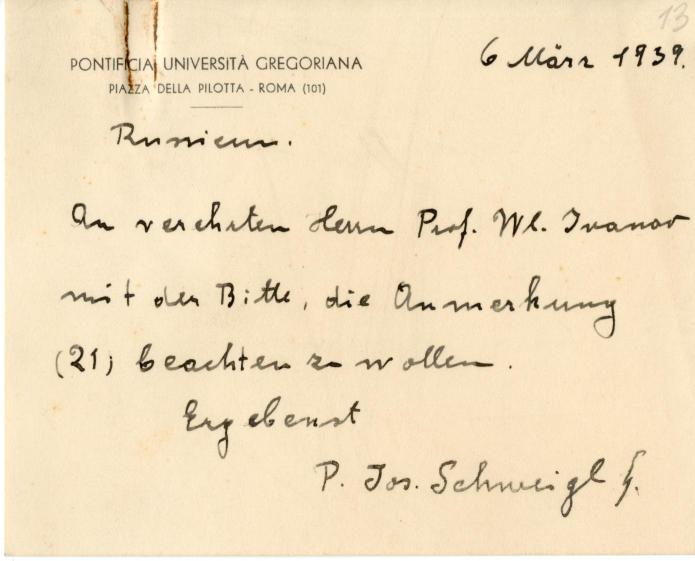 13
PONTIFICIA UNIVERSITÀ GREGORIANA
PIAZZA DELLA PILOTTA - ROMA (101)
6 März 1939.
Russicum.
An verehrten Herrn Prof. Wl. Ivanov
mit der Bitte, die Anmerkung
(21) beachten zu wollen.
Ergebenst
P. Jos. Schweigl